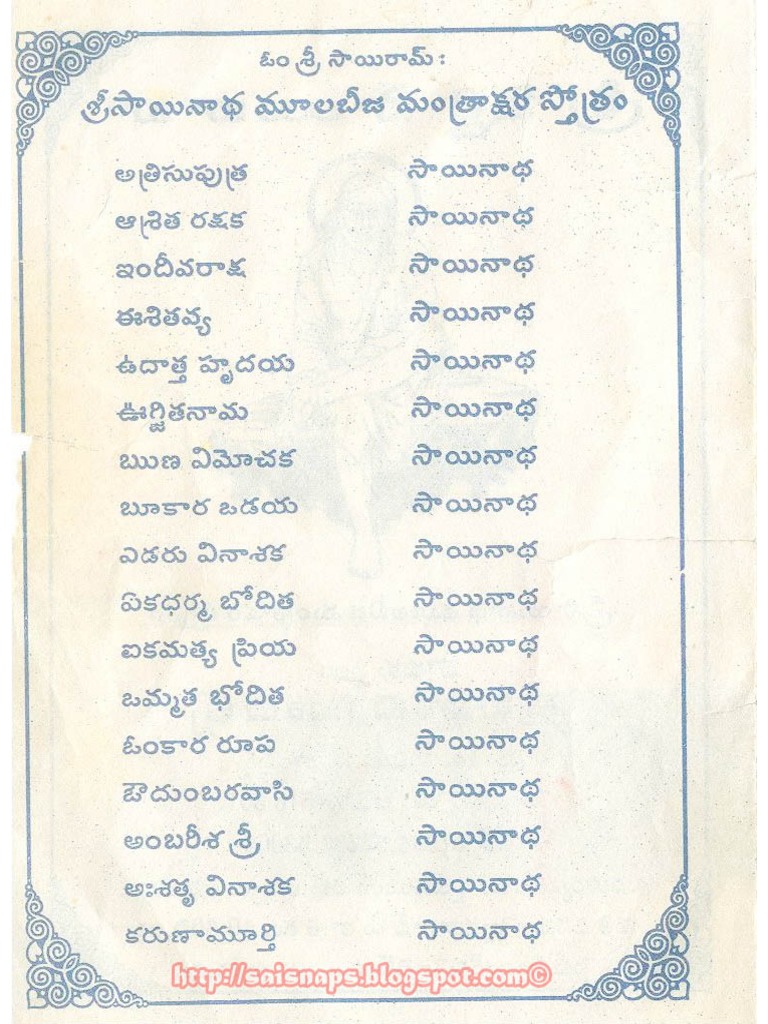 ఓం శ్రీ సాయిరామ్:
శ్రీసాయినాథ మూలబీజ మంత్రాక్షర స్తోత్రం
అత్రిసుపుత్ర సాయినాథ
ఆశ్రిత రక్షక సాయినాథ
ఇందీవరాక్ష సాయినాథ
ఈశితవ్య సాయినాథ
ఉదాత్త హృదయ సాయినాథ
ఊర్జితనామ సాయినాథ
ఋణ విమోచక సాయినాథ
ౠకార ఒడయ సాయినాథ
ఎడరు వినాశక సాయినాథ
ఏకధర్మ బోదిత సాయినాథ
ఐకమత్య ప్రియ సాయినాథ
ఒమ్మత భోదిత సాయినాథ
ఓంకార రూప సాయినాథ
ఔదుంబరవాసి సాయినాథ
అంబరీశ శ్రీ సాయినాథ
అఃశతృ వినాశక సాయినాథ
కరుణామూర్తి సాయినాథ
http://saisnaps.blogspot.com©